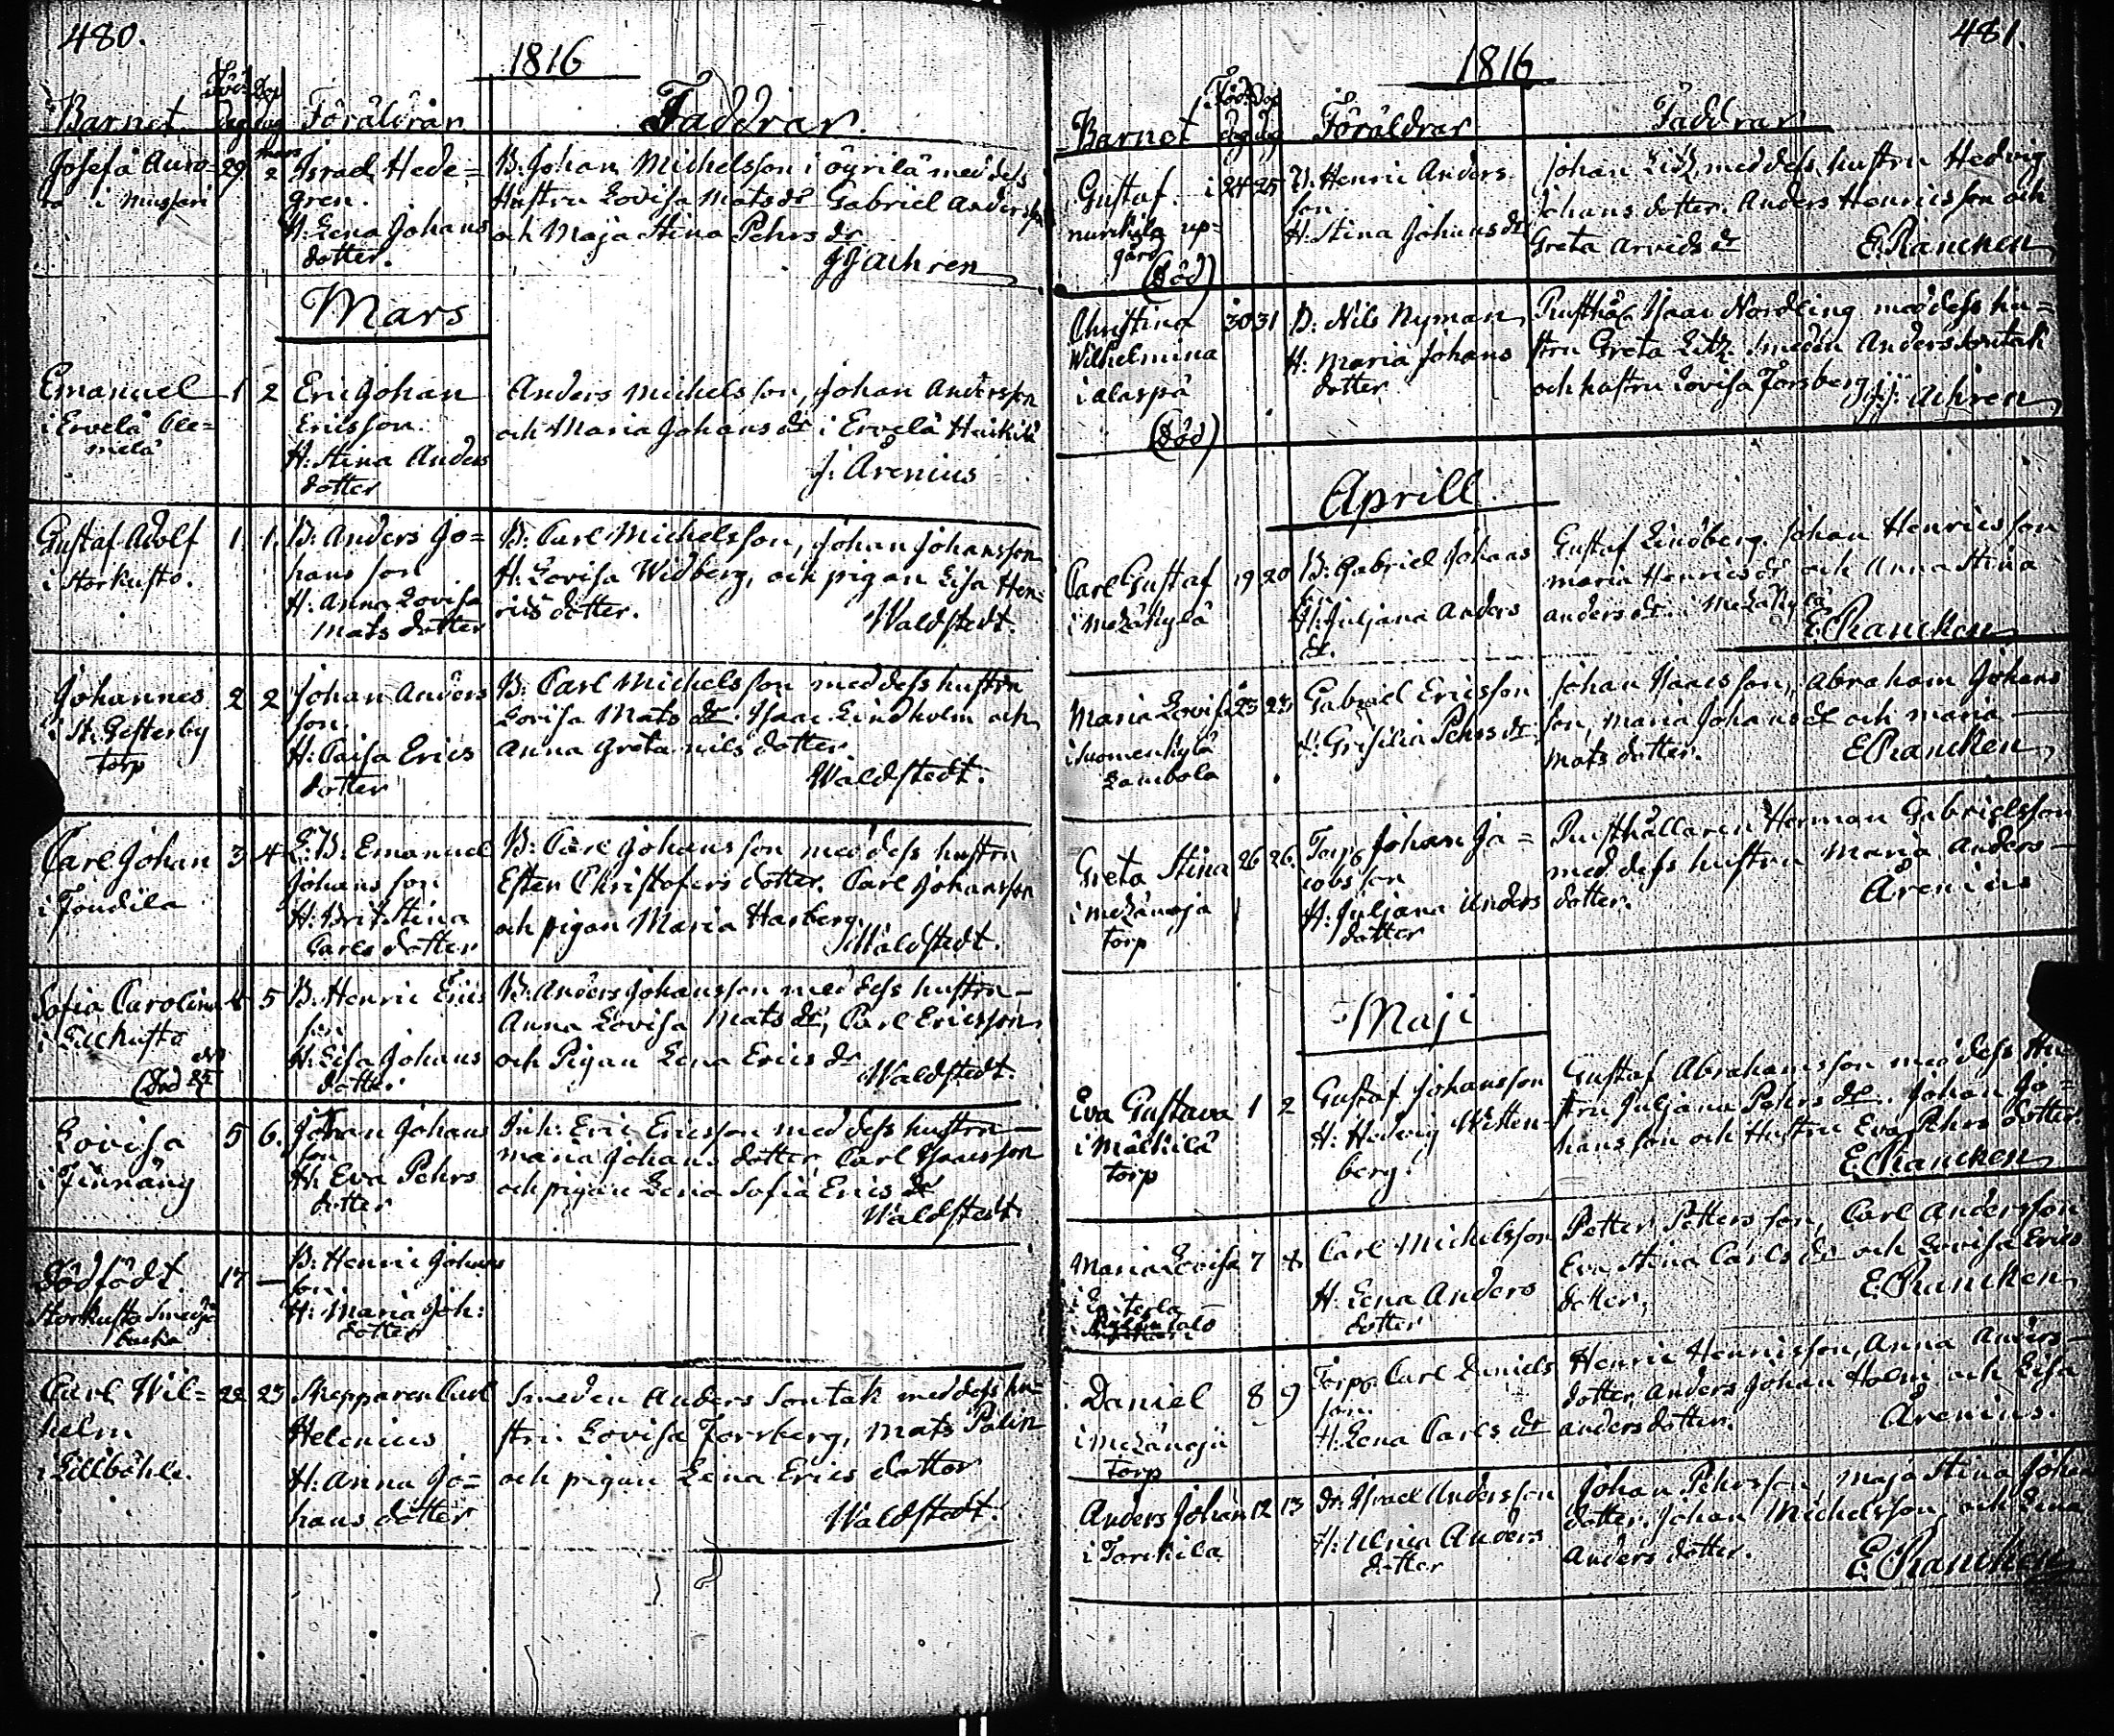 480.
1816
Barnet Föd. dag Dop dag Föräldrar Faddrar.
Josefa Auro- 29 mars 2 Israel Hede= B. Johan Michelsson i öyrilä med dess
ra i Mussari gren. Hustru Lovisa Mats dr Gabriel Andersson
H. Lena Johans och Maja Stina Pehrs dr
dotter. JJ Achren
Mars
Emanuel 1 2 Eric Johan Anders Michelsson, Johan Andersson
i Ervelä Ericsson. och Maria Johans dr i Ervelä Heikkilä
H: Stina Anders J. Arenius
dotter
Gustaf Adolf 1. 1. B: Anders Jo= B: Carl Michelsson, Johan Johansson
i Storkusto. hansson H. Lovisa Widberg, och pigan Lisa Hen=
H: Anna Lovisa rics dotter.
Mats dotter Waldstedt.
Johannes 2 2 Johan Anders B: Carl Michelsson med dess hustru
i St. Gesterby son. Lovisa Mats dr. Isaac Lindholm och
torp H: Caisa Erics Anna Greta Nils dotter
dotter Waldstedt.
Carl Johan 3 4 B: Emanuel B: Carl Johansson med dess hustru
i Johansson Ester Christofers dotter. Carl Johansson
H: Brit Stina och pigan Maria Hasberg.
Carls dotter Waldstedt.
Sofia Carolina 4 5 B: Henric Erics B: Anders Johansson med dess hustru
i Lillkusto son Anna Lovisa Mats dr, Carl Ericsson
H. Lisa Johans och Pigan Lena Erics dr
dotter. Waldstedt.
Lovisa 5 6. Johan Johans Inh: Eric Ericsson med dess hustru
i Finnäng son Maria Johans dotter, Carl Isacsson
H: Eva Pehrs och pigan Lena Sofia Erics dr
dotter Waldstedt.
Dödfödt 17 — B: Henric Johans
Storkusto Smedje son.
backa H: Maria Joh:
dotter
Carl Wil= 22 23 Skepparen Carl Smeden Anders Sontak med dess hu=
helm Helenius stru Lovisa Forsberg, Mats Palin
i Lillböhle. H: Anna Jo= och pigan Lena Erics dotter
hans dotter Waldstedt.
481.
1816
Barnet Född dag Dop dag Föräldrar Faddrar
Gustaf i 24 25 B: Henric Anders Johan Litz, med dess hustru Hedvig
nurkila up= son Johans dotter. Anders Henricsson och
gård H: Stina Johans dr Greta Arvids dr E. Rancken
(död)
Christina 30 31 B: Nils Nyman Rusthål. Isaac Nordling med dess hu=
Wilhelmina H: Maria Johans stru Greta Litz. Smeden Anders Sontak
i alaspä dotter och hustru Lovisa Forsberg J.J. Achren
(död)
Aprill
Carl Gustaf 19 20 B: Gabriel Johans Gustaf Lindberg. Johan Henricsson
i Mezäkylä Maria Henrics dr och Anna Stina
H: Juliana Anders anders dr i Mezäkylä
dr. E. Rancken
Maria Lovisa 23 23 Gabriel Ericsson Johan Isacsson, Abraham Johans
i Suomenkylä H: Grisilia Pehrs dr son, Maria Johans dr och Maria
Lambola Mats dotter. E. Rancken
Greta Stina 26 26. Torp. Johan Ja= Rusthållaren Herman Gabrielsson
i mezänoja cobsson med dess hustru Maria Anders
torp H: Juliana Anders dotter. Arenius
dotter
Maji
Eva Gustava 1 2 Gustaf Johansson Gustaf Abrahamsson med dess Hu
i Mälkilä H: Hedvig Witten= stru Juliana Pehrs dr. Johan Jo=
torp berg. hansson och Hustru Eva Pehrs dotter.
E. Rancken
Maria Lovisa 7 8 Carl Michelsson Petter Pettersson, Carl Andersson
H: Lena Anders Eva Stina Carls dr och Lovisa Erics
dotter dotter, E. Rancken
Daniel 8 9 Torp. Carl Daniels Henric Henricsson, Anna Anders
i mezänoja son. dotter, Anders Johan Holm och Lisa
torp H: Lena Carls dr anders dotter. Arenius.
Anders Johan 12 13 dr. Israel Andersson Johan Pehrsson, Maja Stina Johans
i Torikila H: Ulrica Anders dotter. Johan Michelsson, och Lena
dotter Anders dotter. E. Rancken